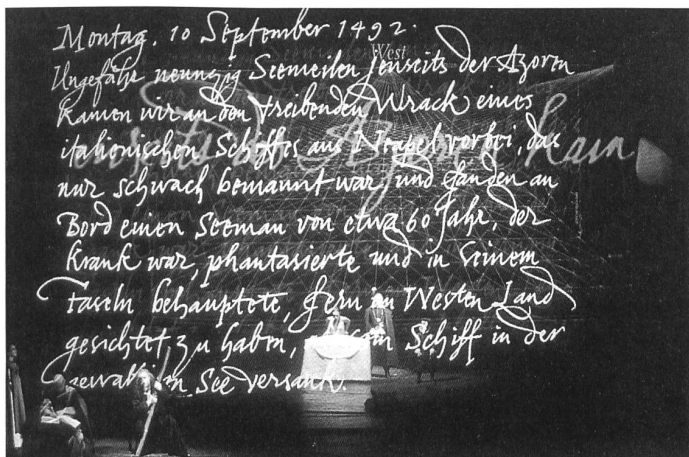 Montag. 10 September 1492.
West
Ungefähr neunzig Seemeilen jenseits der Azoren
kamen wir an den treibenden Wrack eines
jenseits der Azoren kam
italienischen Schiffes aus Neapel vorbei, das
nur schwach bemannt war, und fanden an
Bord einen Seeman von etwa 60 Jahr, der
krank war, phantasierte und in seinem
Faseln behauptete, fern im Westen Land
gesichtet zu haben, sein Schiff in der
gewalt See versank.